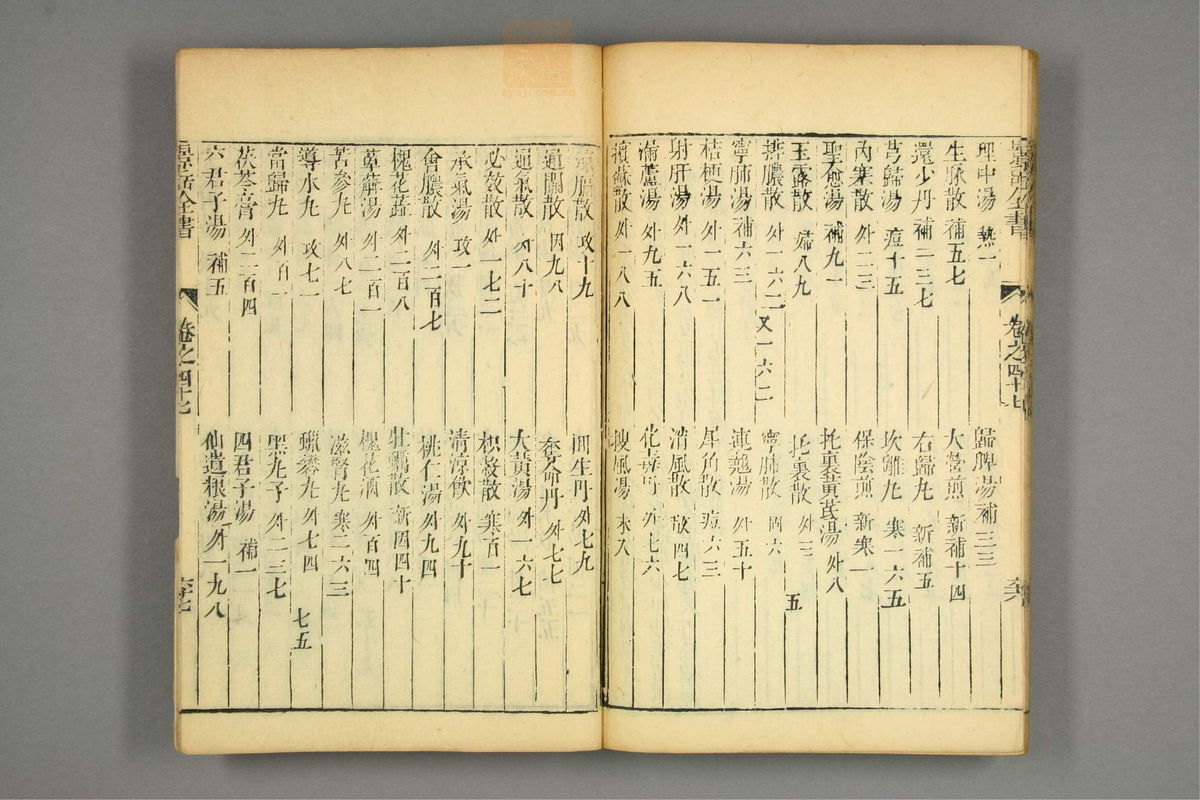 景岳全書 卷之四十七
理中湯 熱一 歸脾湯 補三三
生脉散 補五七 大營煎 新補十四
還少丹 補一三七 右歸丸 新補五
芎歸湯 痘十五 坎離丸 寒一六五
內寒散 外二三 保陰煎 新寒一
聖愈湯 補九一 托裏黃芪湯 外八
玉露散 婦八九 托裏散 外三 五
排膿散 外一六二 又一六二 寧肺散 固六
寧肺湯 補六三 連翹湯 外五十
桔梗湯 外一五一 犀角散 痘六三
射肝湯 外一六八 消風散 散四七
漏蘆湯 外九五 花毒丹 外七六
搜風湯 末入
散 外一八八
散 攻十九 回生丹 外七九
通關散 因九八 奪命丹 外七七
通氣散 外八十 大黃湯 外一六七
必效散 外一七二 枳殼散 寒百一
承氣湯 攻一 清涼飲 外九十
會膿散 外二百七 桃仁湯 外九四
槐花蕋 外二百八 牡蠣散 新因四十
萆薢湯 外二百一 槐花酒 外百四
苦參丸 外八七 滋腎丸 寒二六三
導水丸 攻七一 蠟礬丸 外七四 七五
當歸丸 外百一 黑丸子 外二三七
茯苓膏 外二百四 四君子湯 補一
六君子湯 補五 仙遺粮湯 外一九八
景岳全書 卷之四十七